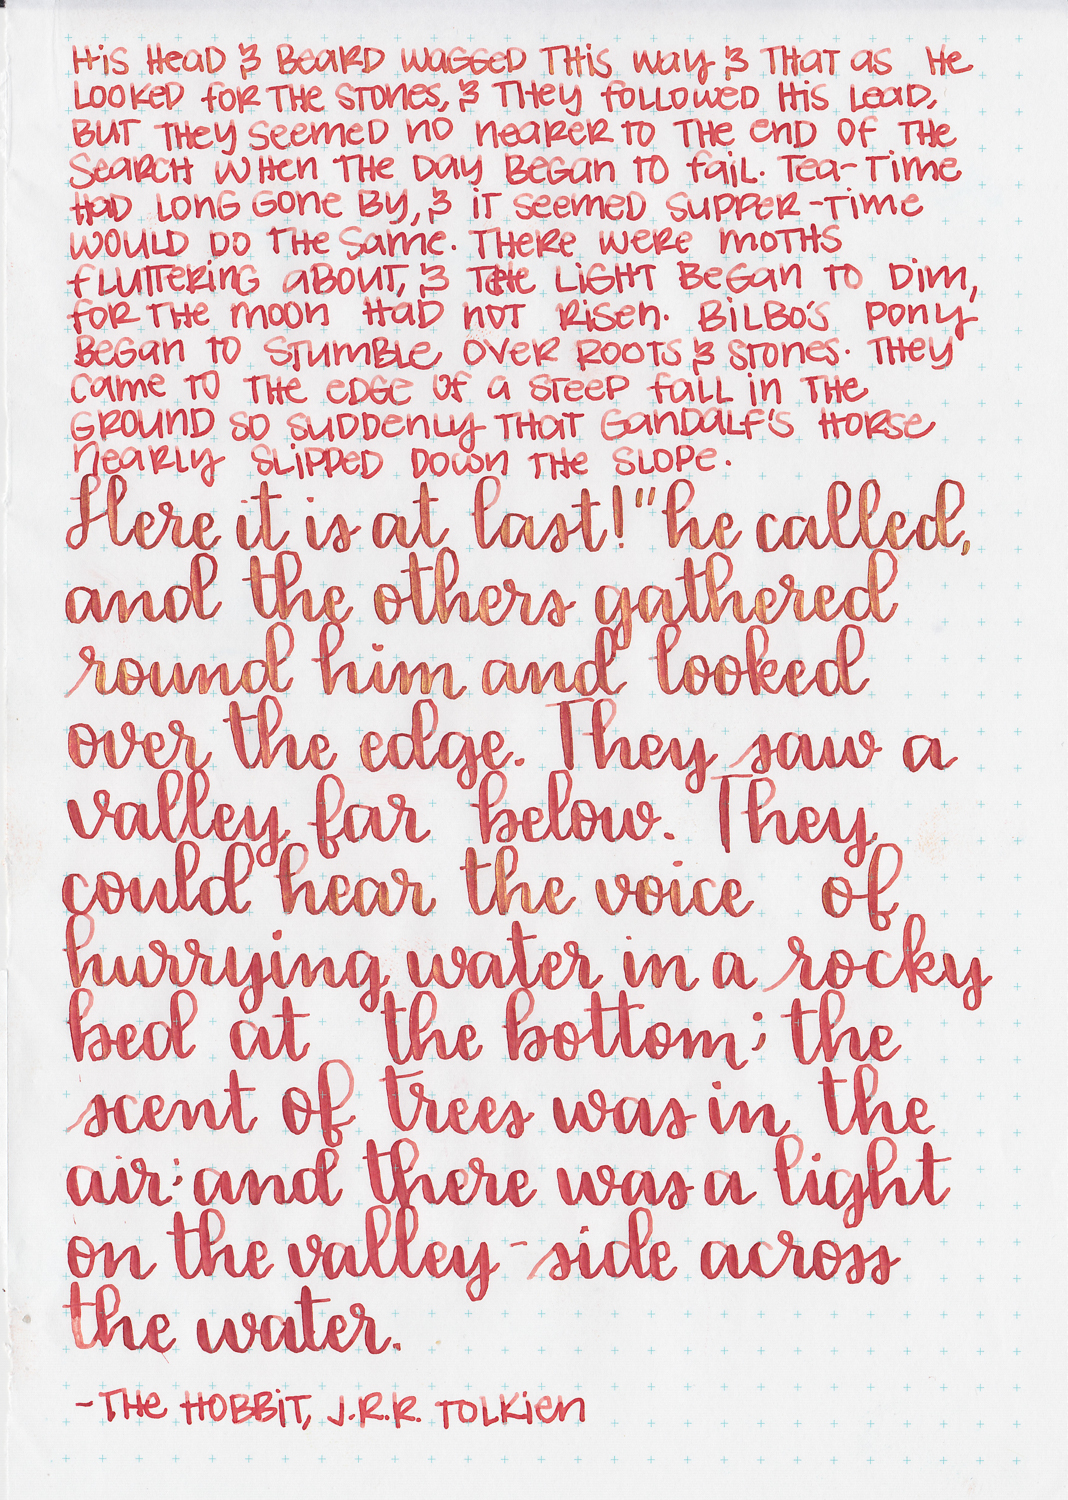 His Head & Beard wagged This way & That as He
Looked for The Stones, & They followed His Lead,
But They seemed no nearer to The end of The
Search when The Day Began To fail. Tea-Time
Had Long Gone By, & it seemed supper-Time
would do The same. There were moths
fluttering about, & The Light Began To Dim,
for The moon Had not risen. Bilbo's pony
Began To Stumble over roots & stones. They
came to The edge of a steep fall in The
Ground so suddenly That Gandalf's Horse
nearly slipped down The slope.
Here it is at last!" he called,
and the others gathered
round him and looked
over the edge. They saw a
valley far below. They
could hear the voice of
hurrying water in a rocky
bed at the bottom; the
scent of trees was in the
air; and there was a light
on the valley-side across
the water.
~The Hobbit, J.R.R. Tolkien